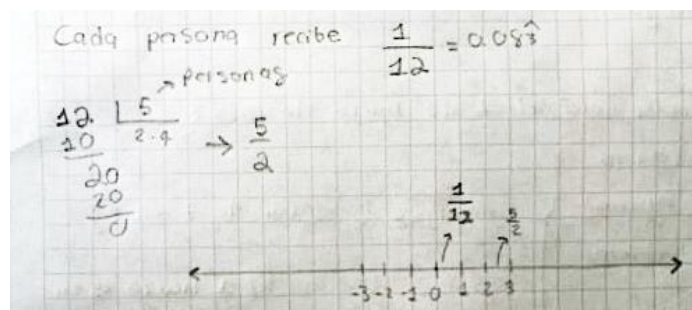 Cada persona recibe 1/12 = 0.083̂
→ personas
12 | 5
10 2.4 → 5/2
20
20
0
1/12 5/2
-3 -2 -1 0 1 2 3